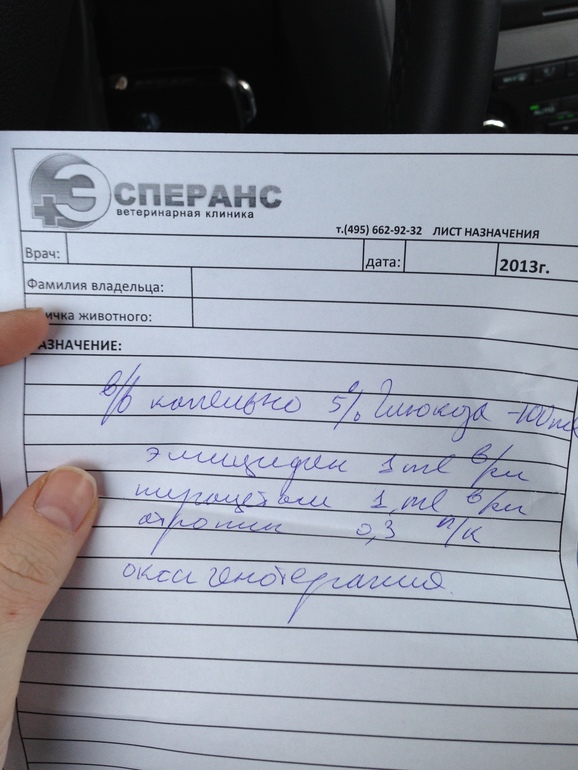 ЭСПЕРАНС
ветеринарная клиника
т.(495) 662-92-32 ЛИСТ НАЗНАЧЕНИЯ
Врач: дата: 2013г.
Фамилия владельца:
ичка животного:
АЗНАЧЕНИЕ:
в/в капельно 5% Глюкоза -100ml
эмицидин 1 ml в/м
пирацетам 1 ml в/м
атропин 0,3 п/к
оксигенотерапия.